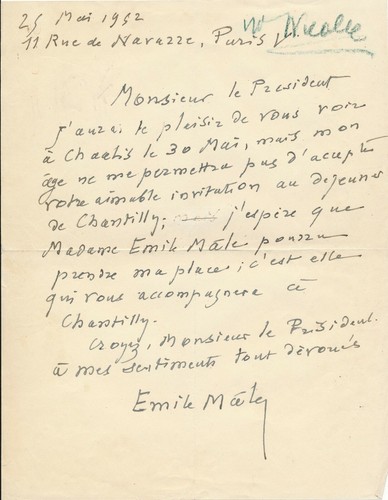 25 Mai 1952 Mr Nicolle
11 Rue de Navarre, Paris V
Monsieur le President
J'aurai le plaisir de vous voir
à Chaalis le 30 Mai, mais mon
âge ne me permettra pas d'accepter
votre aimable invitation au dejeuner
de Chantilly; j'espère que
Madame Emile Mâle pourra
prendre ma place; c'est elle
qui vous accompagnera à
Chantilly.
Croyez, Monsieur le Président
à mes sentiments tout dévoués
Emile Mâle